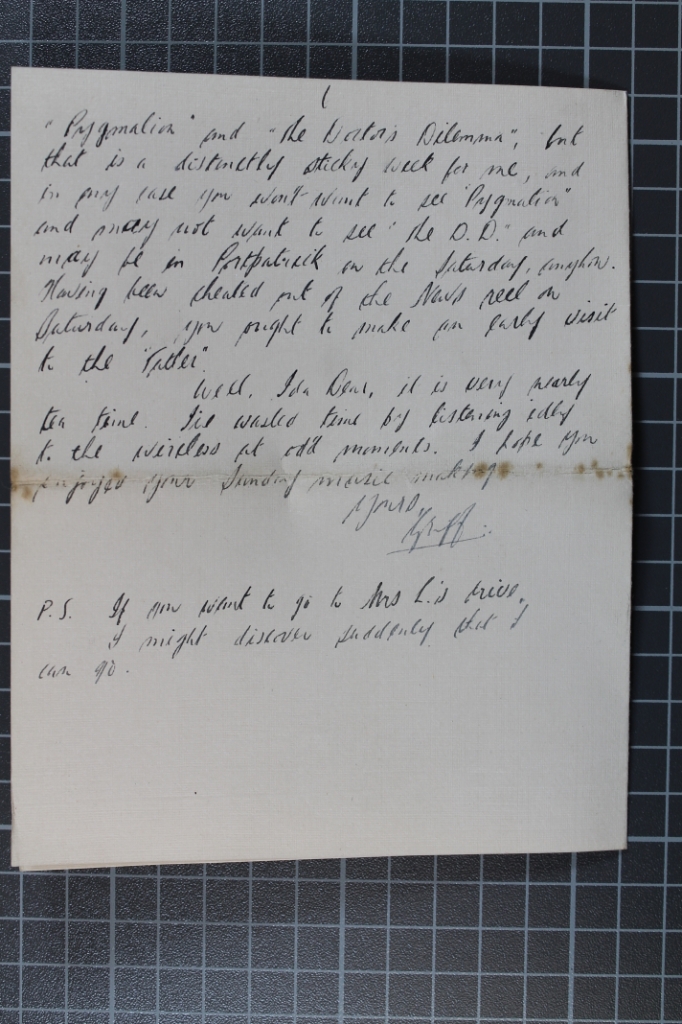 "Pygmalion" and "the Doctor's Dilemma", but
that is a distinctly sticky week for me, and
in any case you won't want to see "Pygmalion"
and may not want to see "the D.D." and
may be in Portpatrick on the Saturday, anyhow.
Having been cheated out of the News reel on
Saturday, you ought to make an early visit
to the "Tatler".
Well, Ida Dear, it is very nearly
tea time. I've wasted time by listening idly
to the wireless at odd moments. I hope you
enjoyed your Sunday music making
Yours,
P.S. If you want to go to Mrs L.'s drive,
I might discover suddenly that I
can go.